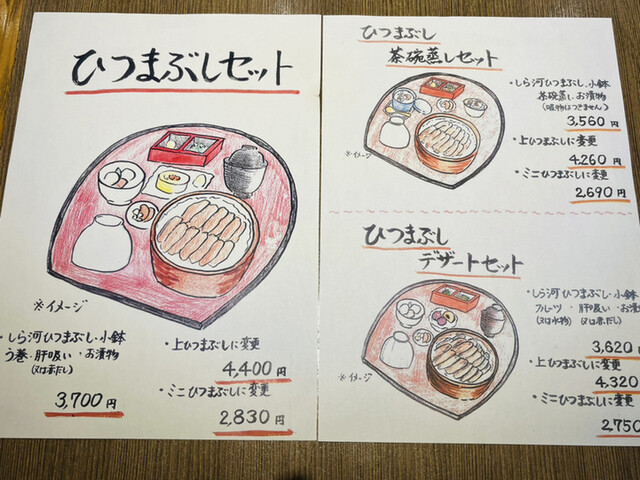 ひつまぶしセット
※イメージ
・しら河ひつまぶし・小鉢
う巻・肝吸い・お漬物
(又は赤だし)
3,700円
・上ひつまぶしに変更
4,400円
・ミニひつまぶしに変更
2,830円
ひつまぶし
茶碗蒸しセット
※イメージ
・しら河ひつまぶし・小鉢
茶碗蒸し・お漬物
(吸物はつきません)
3,560円
・上ひつまぶしに変更
4,260円
・ミニひつまぶしに変更
2,690円
ひつまぶし
デザートセット
※イメージ
・しら河ひつまぶし・小鉢
フルーツ・肝吸い・お漬
(又は氷物) (又は赤だし)
3,620
・上ひつまぶしに変更
4,320
・ミニひつまぶしに変更
2,750